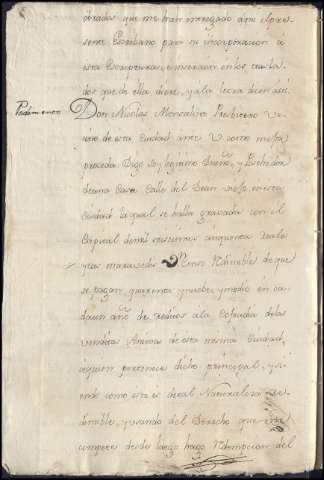 dradas que me han entregado a mi el pre-
sente Escribano para su incorporacion á
esta Escriptura, e insercion en los trasla-
dos que de ella diere, y a la letra dicen asi.
Pedimento
Don Nicolas Monsalve Presbitero Ve-
cino de esta Ciudad ante V. como mejor
proceda Digo: soy legitimo Dueño, y Poseedor
de una Casa Calle del Dean viejo en esta
Ciudad la qual se halla gravada con el
Capital de mil seiscientos cinquenta reales
y tres maravedis Censo Redimible de que
se pagan quarenta y nueve y medio en ca-
da un año de reditos a la Cofradia de las
venditas Animas de esta misma Ciudad,
á quien pertenece dicho principal, y si-
endo como este es de tal Naturaleza re-
dimible, y usando del Derecho que me
compete desde luego hago Redempcion del